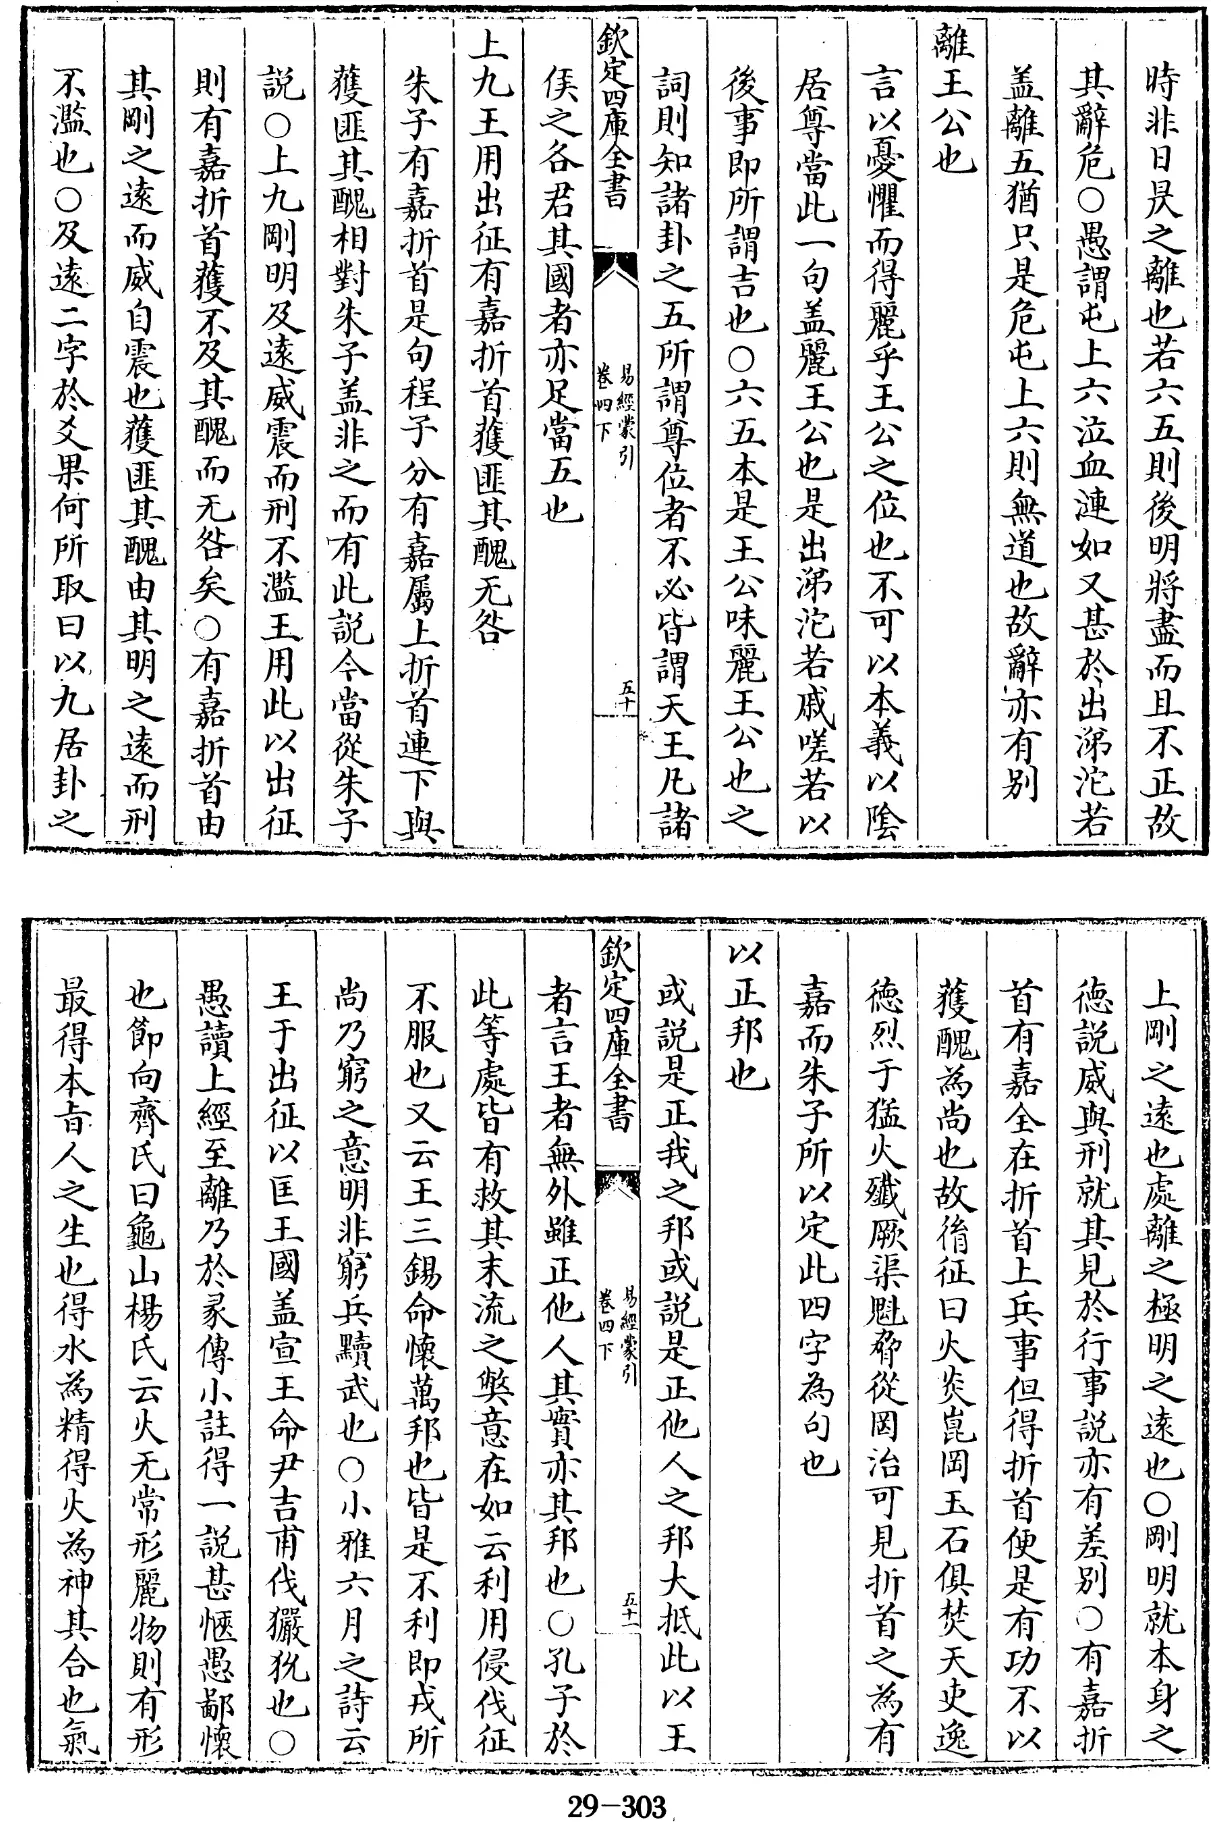 時非日昃之離也若六五則後明將盡而且不正故
其辭危○愚謂屯上六泣血漣如又甚於出涕沱若
盖離五猶只是危屯上六則無道也故辭亦有别
離王公也
言以憂懼而得麗乎王公之位也不可以本義以陰
居尊當此一句盖麗王公也是出涕沱若戚嗟若以
後事即所謂吉也○六五本是王公味麗王公也之
詞則知諸卦之五所謂尊位者不必皆謂天王凡諸
欽定四庫全書
易經蒙引
卷四下
五十
侯之各君其國者亦足當五也
上九王用出征有嘉折首獲匪其醜无咎
朱子有嘉折首是句程子分有嘉屬上折首連下與
獲匪其醜相對朱子盖非之而有此説今當從朱子
説○上九剛明及遠威震而刑不濫王用此以出征
則有嘉折首獲不及其醜而无咎矣○有嘉折首由
其剛之遠而威自震也獲匪其醜由其明之遠而刑
不濫也○及遠二字於爻果何所取曰以九居卦之
上剛之遠也處離之極明之遠也○剛明就本身之
徳説威與刑就其見於行事説亦有差别○有嘉折
首有嘉全在折首上兵事但得折首便是有功不以
獲醜為尚也故徜征曰火炎崑岡玉石俱焚天吏逸
徳烈于猛火殲厥渠魁脅從罔治可見折首之為有
嘉而朱子所以定此四字為句也
以正邦也
或説是正我之邦或説是正他人之邦大抵此以王
欽定四庫全書
易經蒙引
卷四下
五十一
者言王者無外雖正他人其實亦其邦也○孔子於
此等處皆有救其末流之獘意在如云利用侵伐征
不服也又云王三錫命懷萬邦也皆是不利即戎所
尚乃窮之意明非窮兵黷武也○小雅六月之詩云
王于出征以匡王國盖宣王命尹吉甫伐玁狁也○
愚讀上經至離乃於彖傳小註得一説甚愜愚鄙懷
也節向齊氏曰龜山楊氏云火无常形麗物則有形
最得本旨人之生也得水為精得火為神其合也氣
29-303